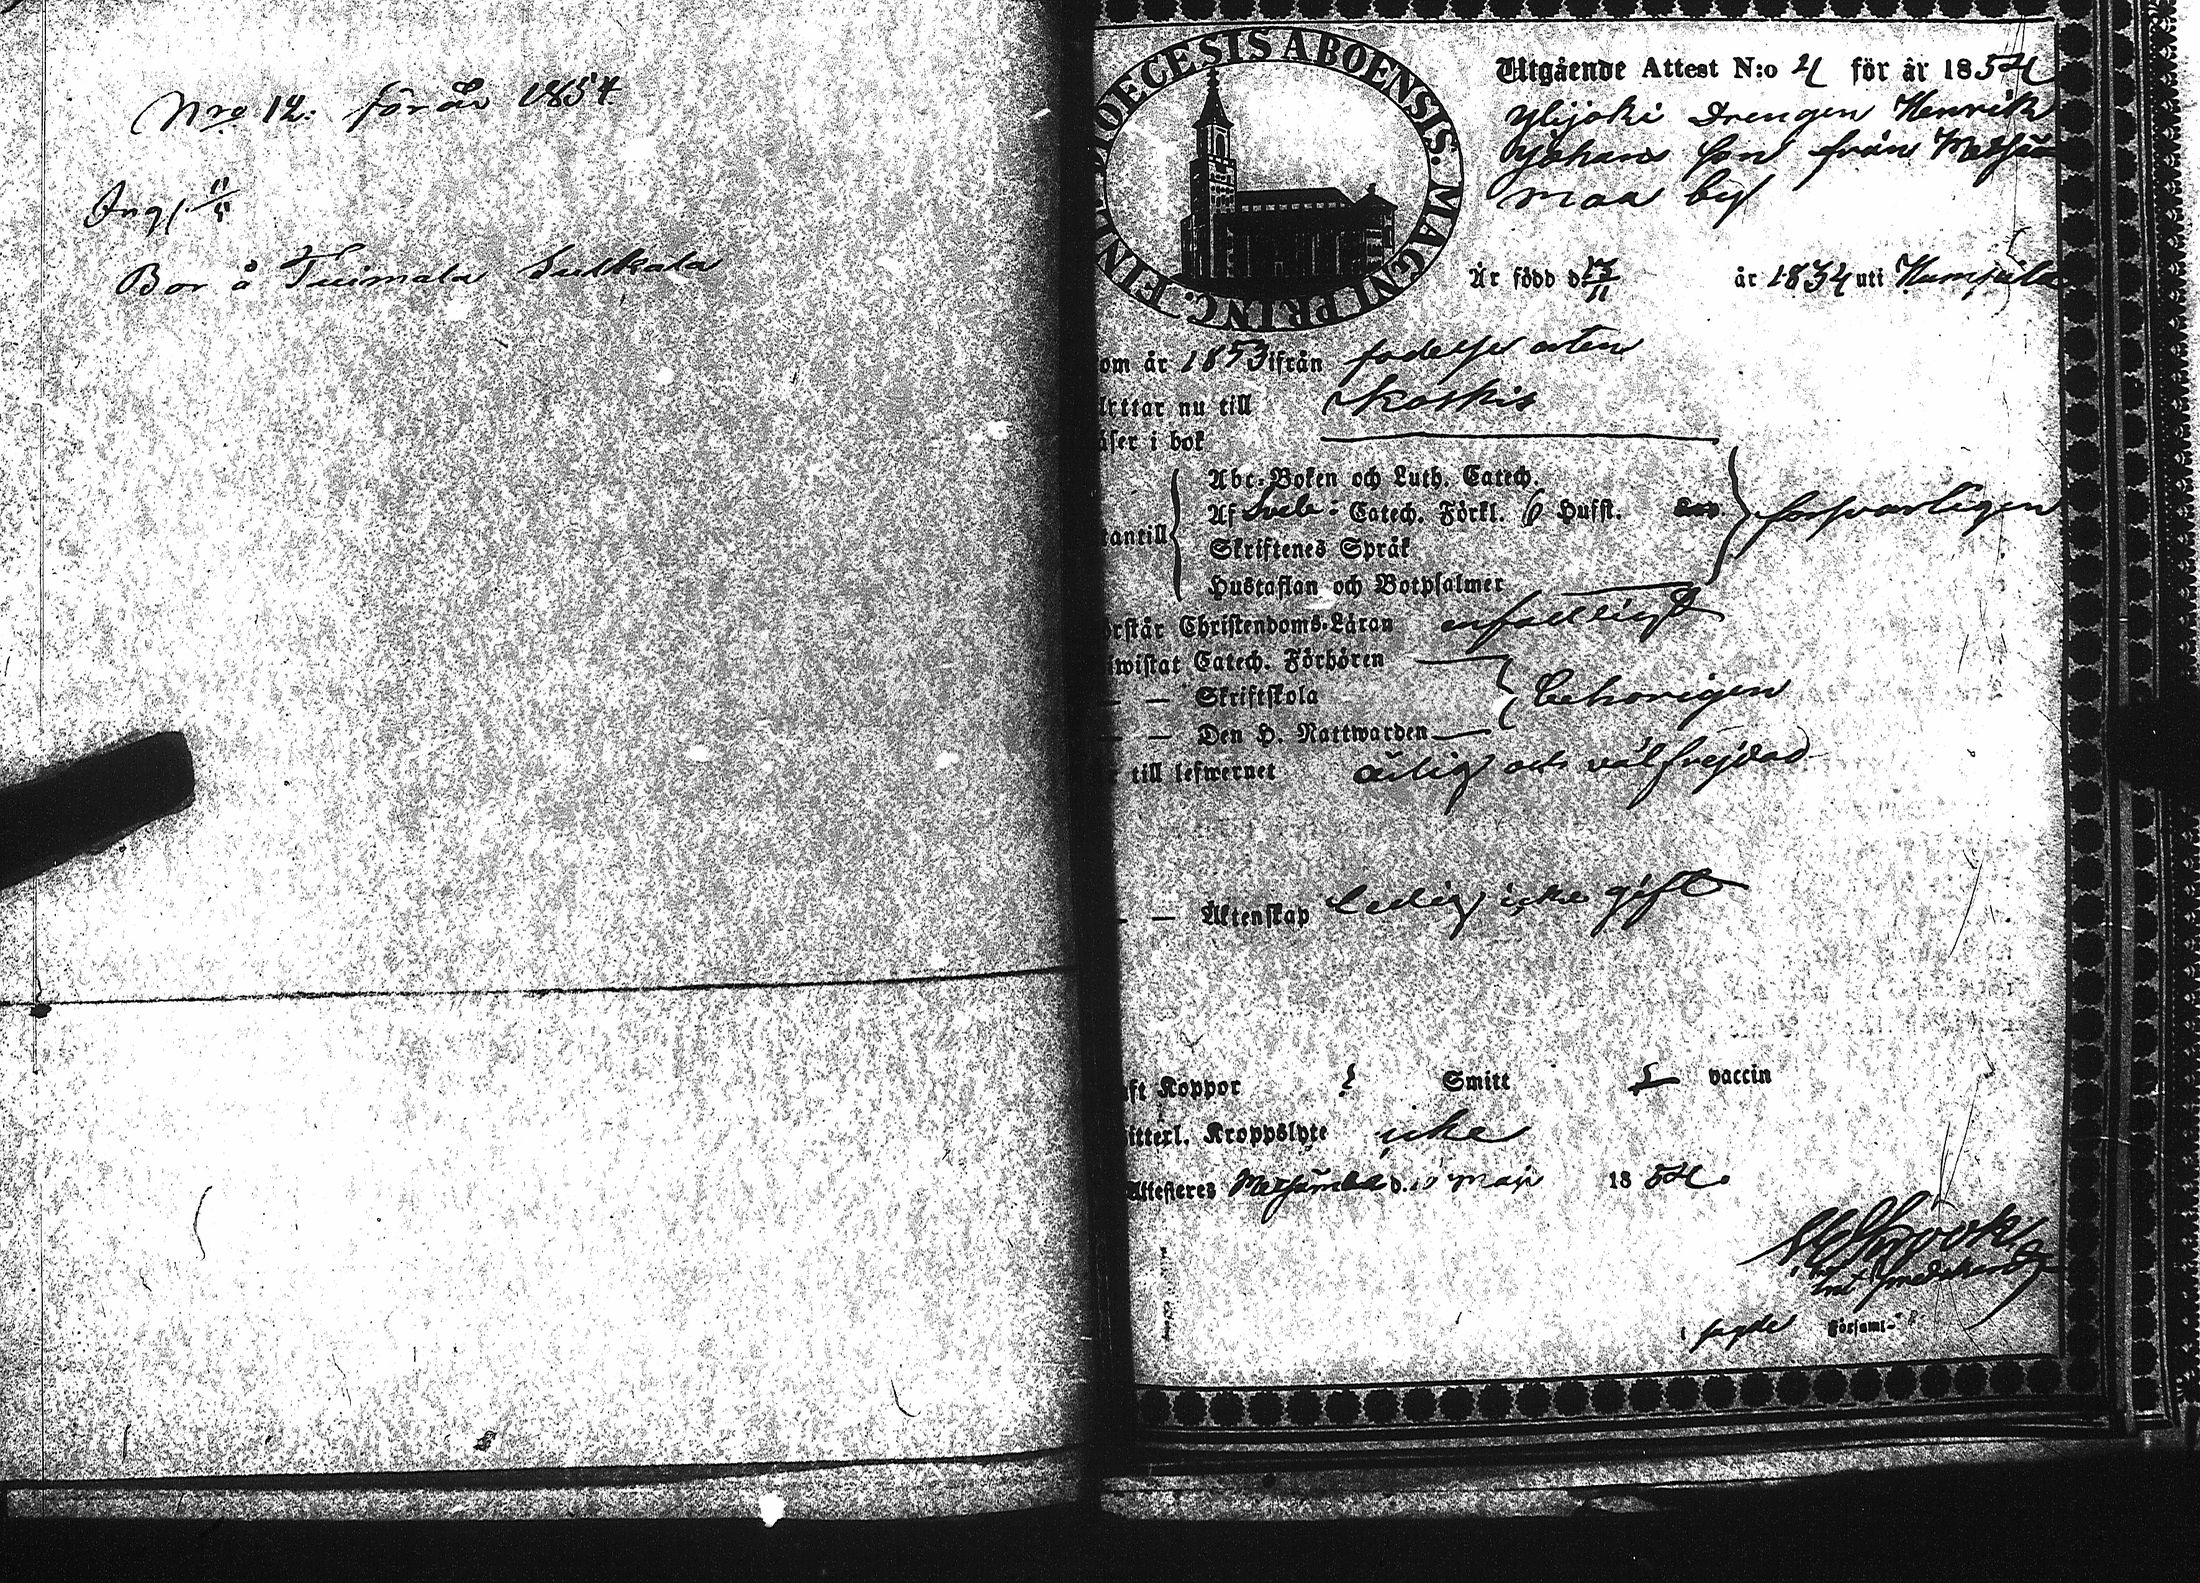 Nro 12. för år 1854
Ingf. 11/5
Bor å Tuimala Sulkala
FINL. DIOECESIS ABOENSIS. MAGNI PRINC.
Utgående Attest N:o 4 för år 1854
Ylijoki Drengen Henrik
Johans son från Metsän
maa by
Är född d. 13/11 år 1834 uti Humppila
om år 1853 ifrån födelse orten
lyttar nu till Koskis
äser i bok
Abc-Boken och Luth. Catech.
Af Sveb: Catech. Förkl. Hufst.
tantill
försvarligen
Skriftenes Språk
Hustaflan och Botpsalmer
örstår Christendoms-Läran enfaldigt
iwistat Catech. Förhören
— — Skriftskola behörigen
— — Den H. Nattwarden
r till lefwernet ärlig och välfrejdad
— — Äktenskap ledig icke gift
aft Koppor Smitt vaccin
itterl. Kroppslyte icke
Attesteres d. 10 Maji 1854.
i sagde Församl.